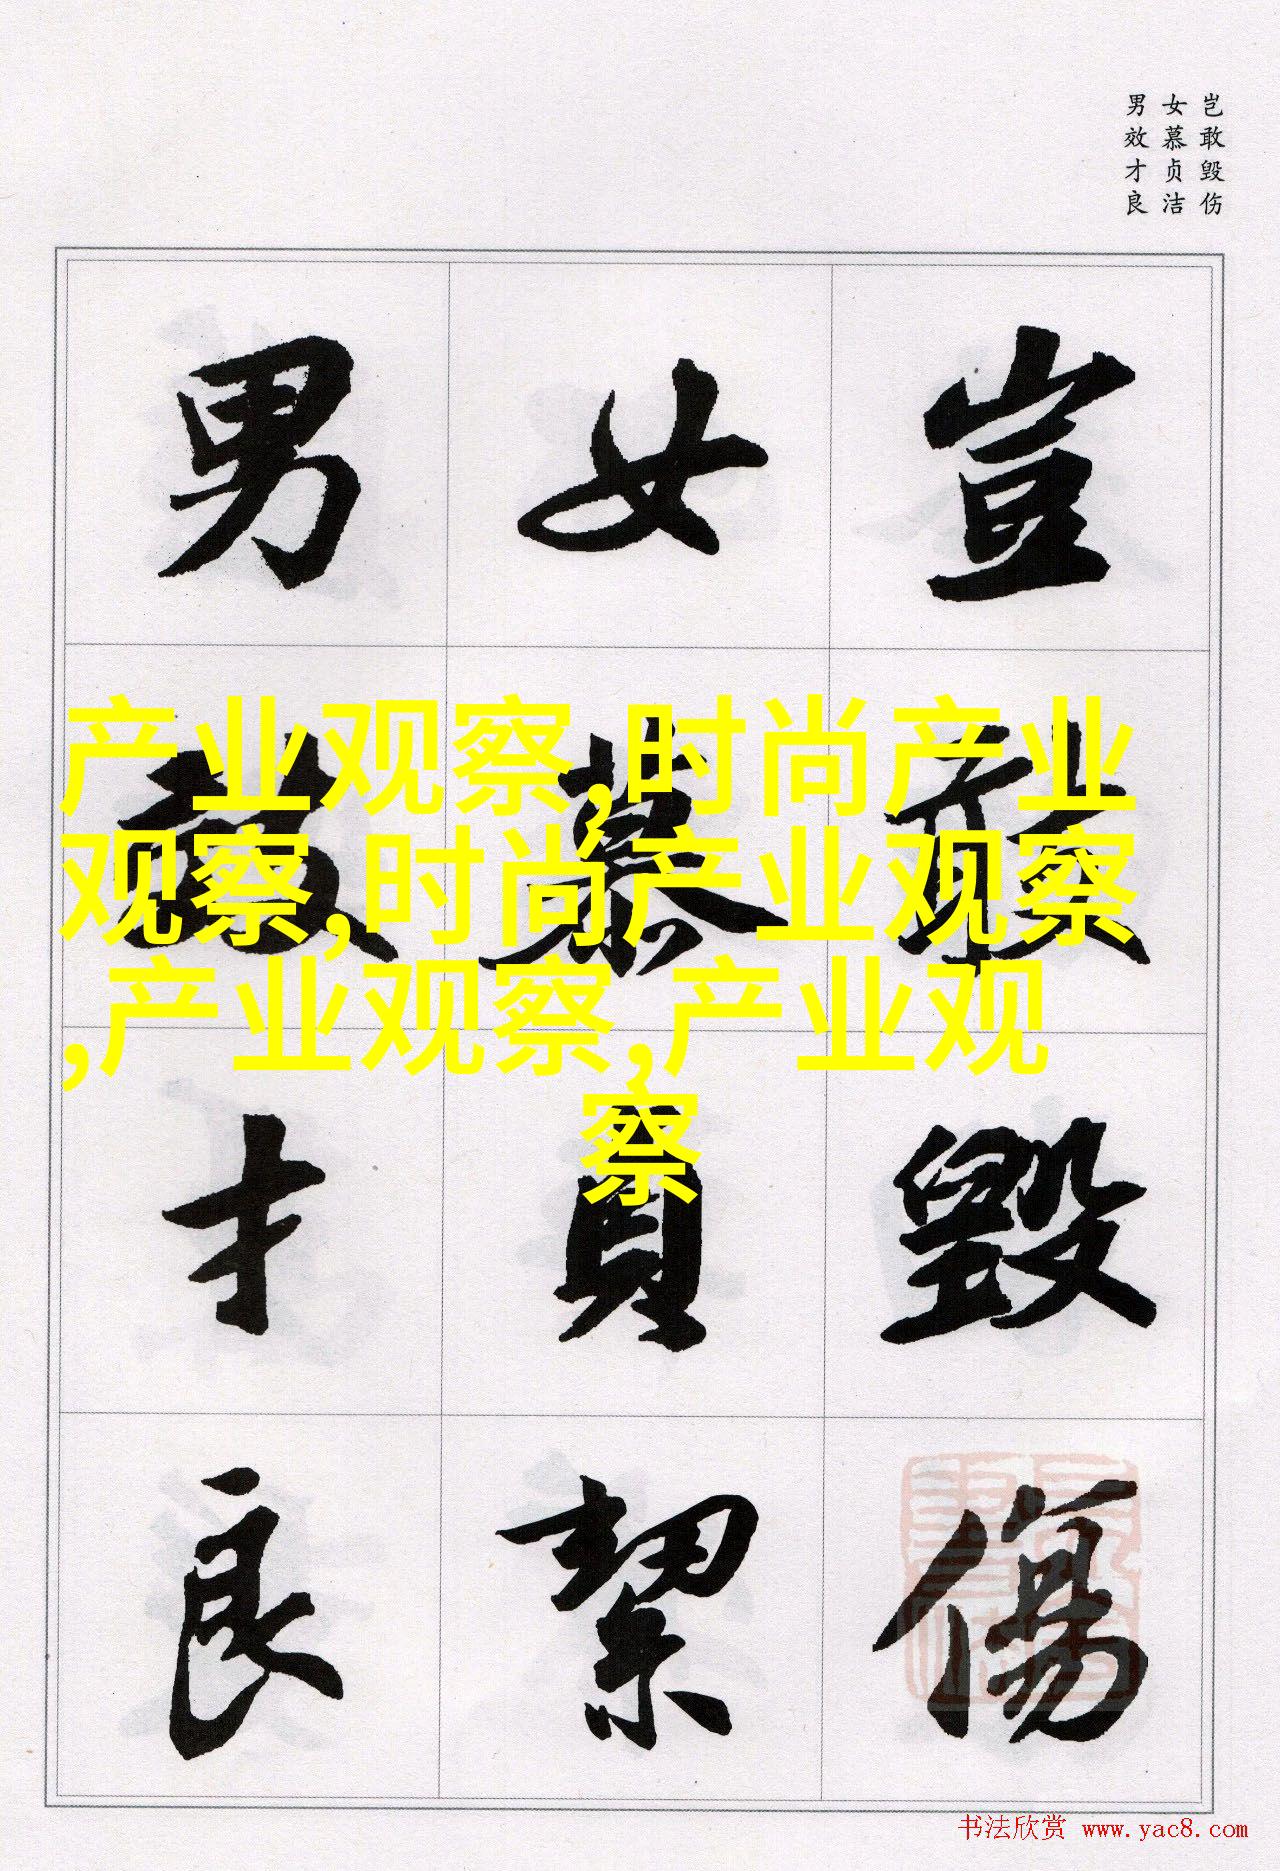 岂敢毁伤
女慕贞洁
男效才良
豈敢毀傷
女慕貞絜
男效才良
产业观察,时尚产业
观察,时尚产业观察
,产业观察,产业观
察
书法欣赏 www.yac8.com